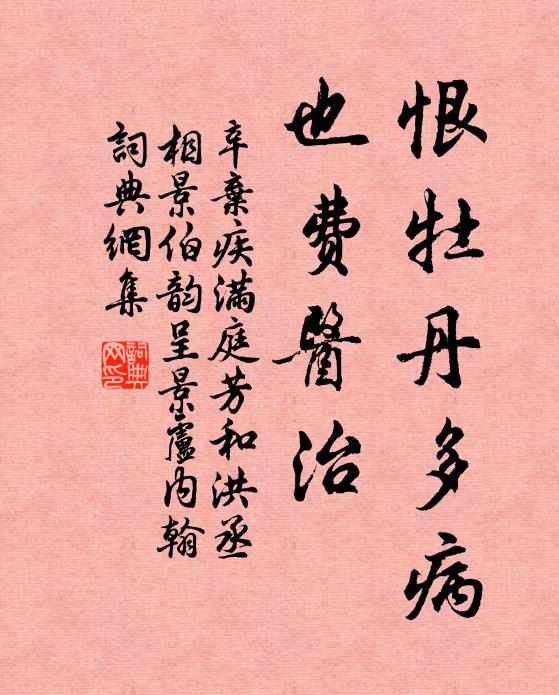 恨牡丹多病
也費醫治
辛棄疾滿庭芳和洪丞
相景伯韵呈景廬内翰
詞典網集
詞典网印